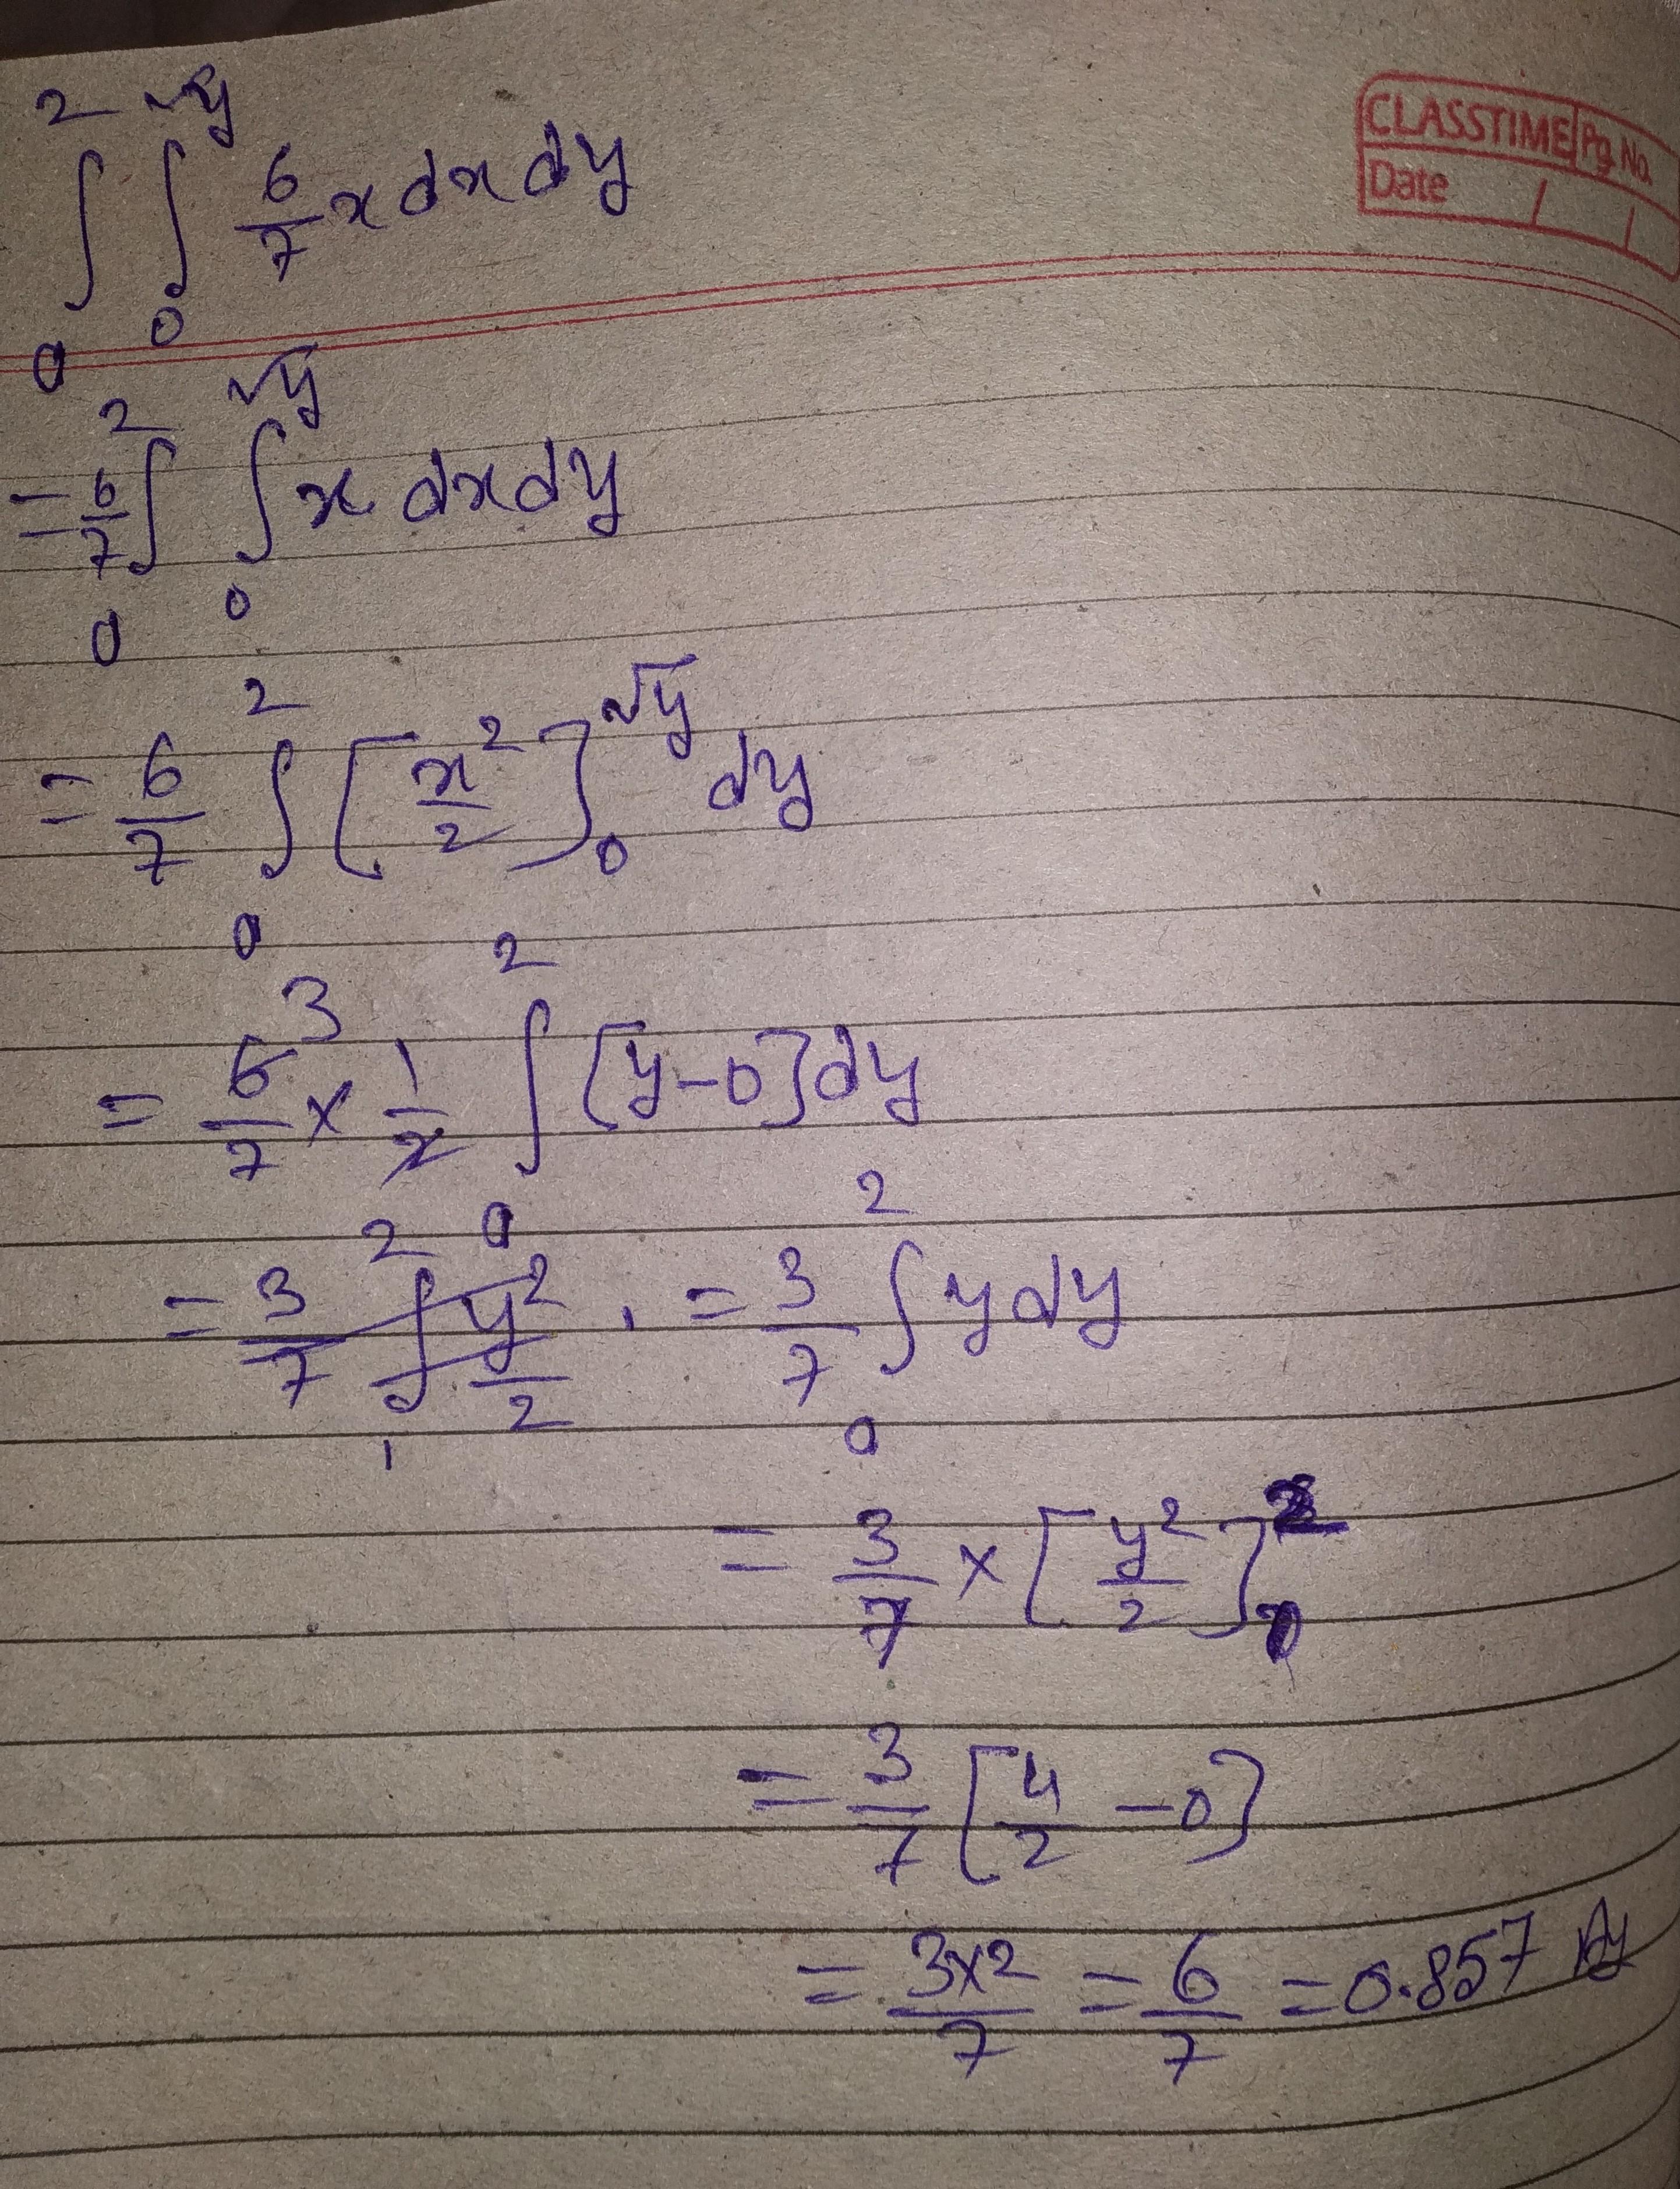 CLASSTIME Pg. No.
Date / /
∫₀² ∫₀^√y 6/7 x dx dy
= 6/7 ∫₀² ∫₀^√y x dx dy
= 6/7 ∫₀² [x²/2]₀^√y dy
= 6/7 × 1/2 ∫₀² [y-0] dy 3
= 3/7 ∫₁² y²/2 , = 3/7 ∫₀² y dy
= 3/7 × [y²/2]₀²
= 3/7 [4/2 - 0]
= 3×2/7 = 6/7 = 0.857